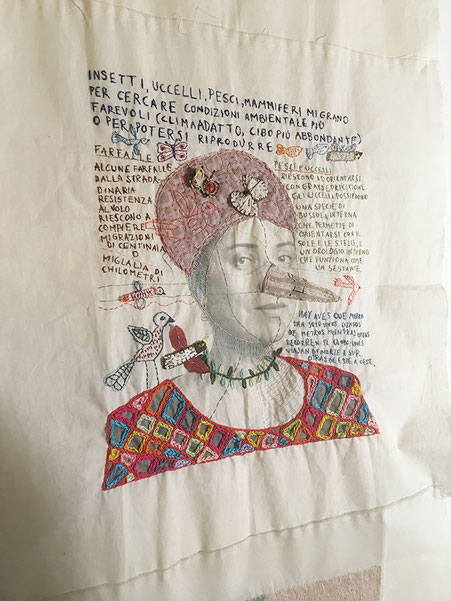 INSETTI, UCCELLI, PESCI, MAMMIFERI MIGRANO
PER CERCARE CONDIZIONI AMBIENTALE PIÙ
FAREVOLI (CLIMA ADATTO, CIBO PIÙ ABBONDANTE)
O PER POTERSI RIPRODURRE
FARFALLE
ALCUNE FARFALLE
DALLA STRADA-
DINARIA
RESISTENZA
AL VOLO
RIESCONO A
COMPIERE
MIGRAZIONI
DI CENTINAIA
O
MIGLIAIA DI
CHILOMETRI
PESCI E UCCELLI
RIESCONO AD ORIENTARSI
CON GRANDE PRECISIONE
GLI UCCELLI POSSIEDONO
UNA SPECIE DI
BUSSOLA INTERNA
CHE PERMETTE DI
ORIENTARSI CON IL
SOLE E LE STELLE, E
UN OROLOGIO INTERNO
CHE FUNZIONA COME
UN SESTANTE.
HAY AVES QUE MIGRAN
TAN SOLO UNOS CUANTOS
DE METROS MIENTRAS OTRAS
RECORREN
VIAJAN DE NORTE A SUR,
OTRAS DE ESTE A OESTE.